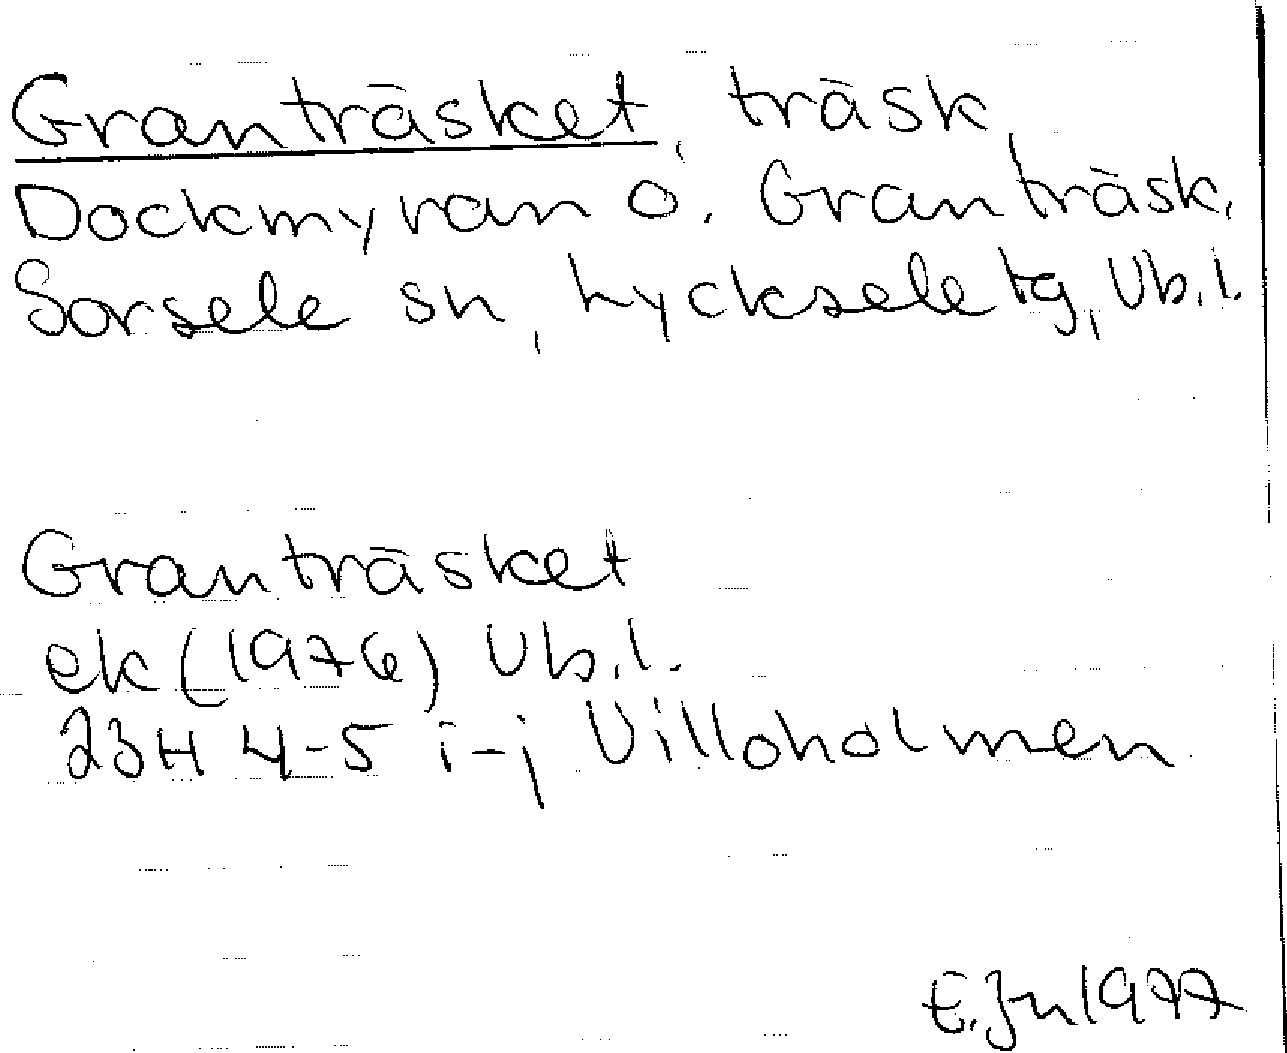 Granträsket, träsk,
Dockmyran o. Granträsk,
Sorsele sn, Lycksele tg, Vb.l.
Granträsket
ek (1976) Vb.l.
23H 4-5 i-j Villoholmen
E. Jn 1977